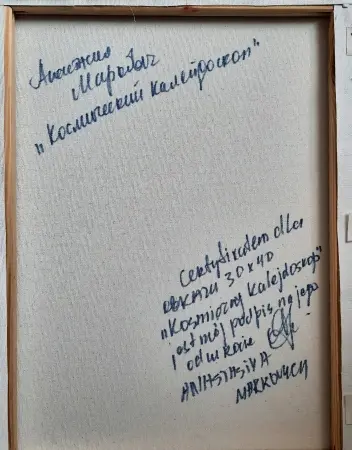 Анастасия
Маркович
"Космический калейдоскоп"
Certyfikatem dla
obrazu 30x40
"Kosmiczny kalejdoskop"
jest mój podpis na jego
odwrocie
ANASTASIYA
MARKOVYCH